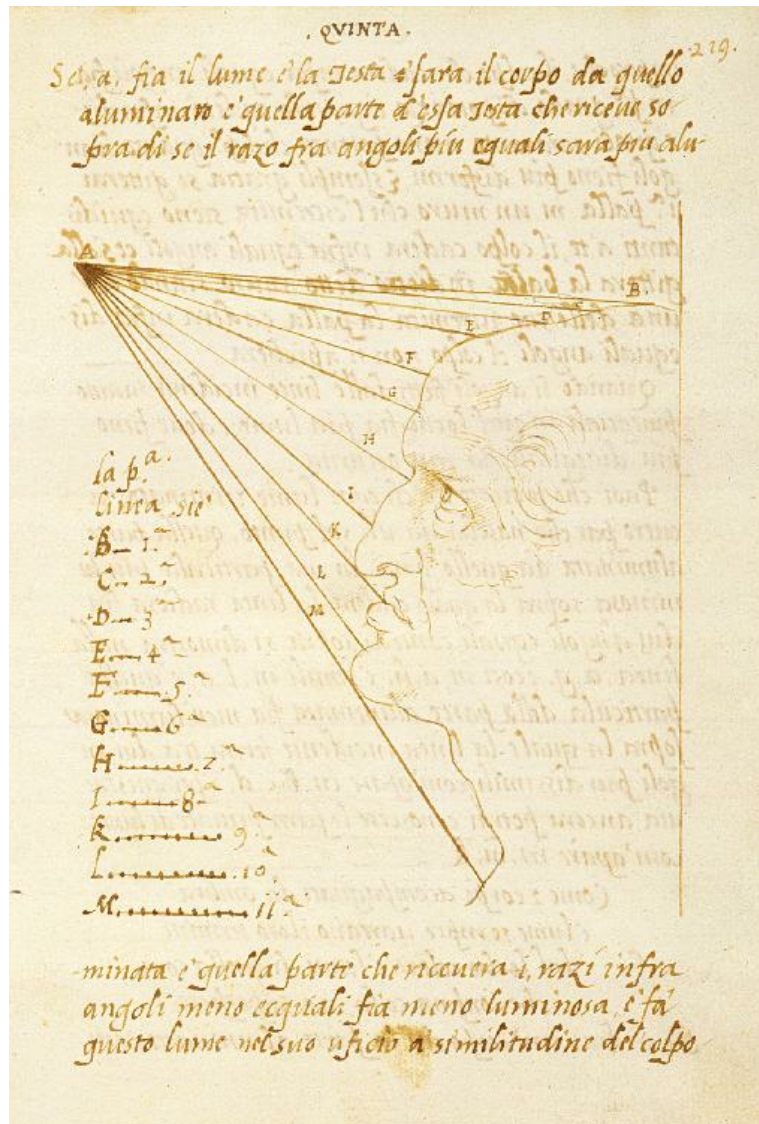 . QVINTA.
219.
Se . a . fia il lume e la Testa sara il corpo da quello
aluminato e quella parte d'essa testa che riceve so-
pra di se il razo fra angoli piu equali sara piu alu-
A
B.
D
C
E
F
G
H
I
K
L
M
la p.a
linea sie
B 1.a
C. 2.a
D 3
E 4a
F 5.a
G 6a
H 7.a
I 8a
K 9a
L 10a
M 11.a
-minata e quella parte che ricevera i, razi infra
angoli meno ecquali fia meno luminosa, e fa
questo lume nel suo uficio a similitudine del colpo